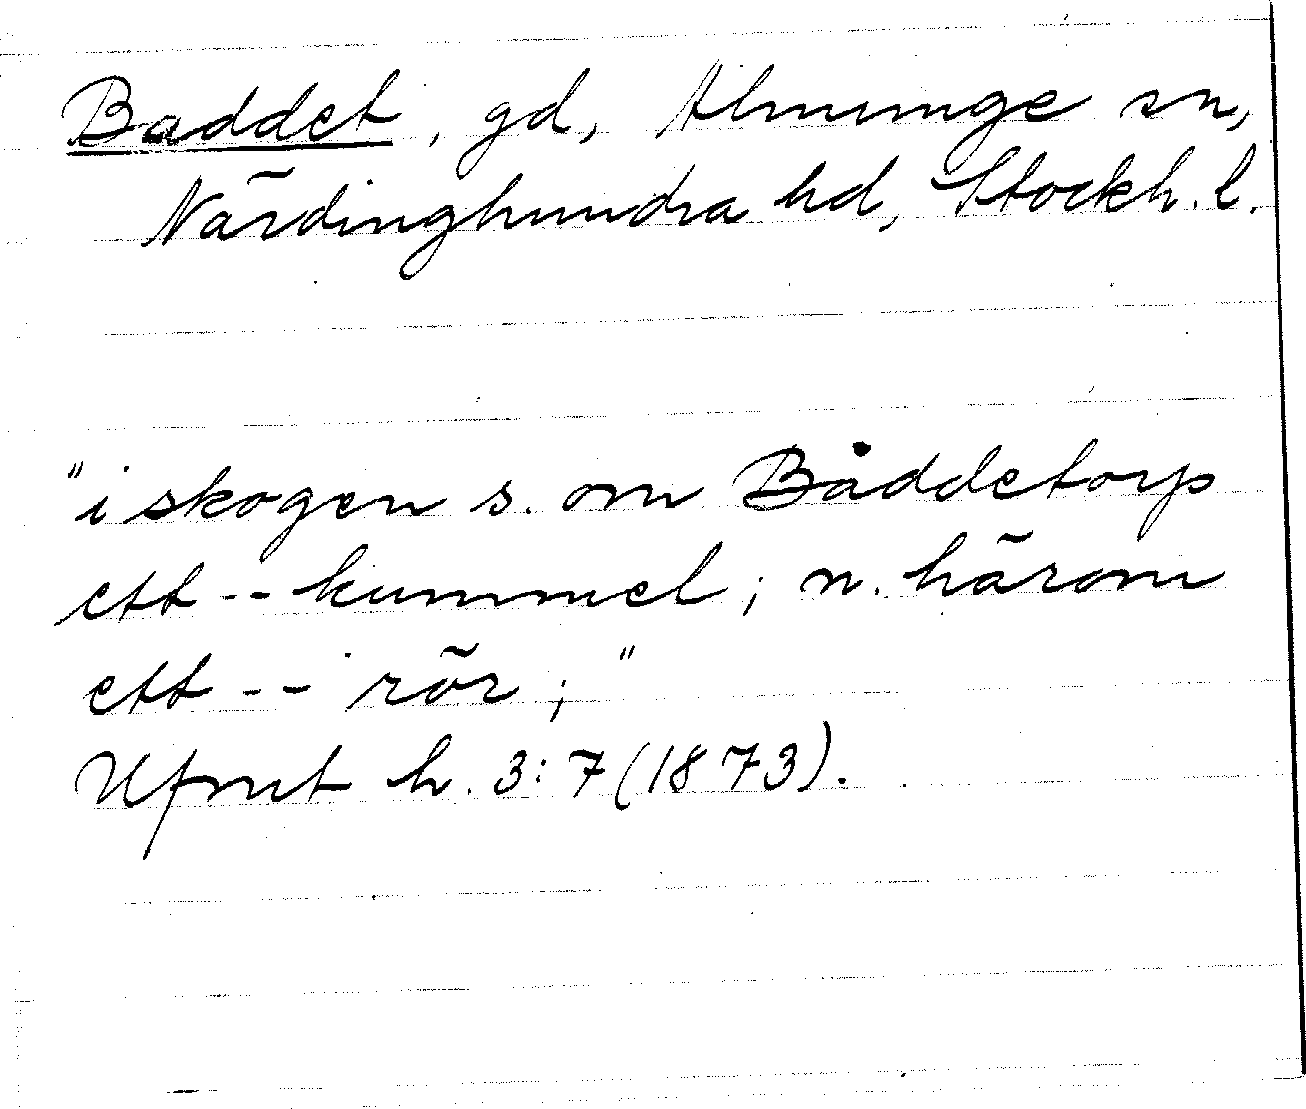 Baddet, gd, Almunge sn,
Närdinghundra hd, Stockh. l.
"i skogen s. om Båddetorp
ett -- kummel; n. härom
ett -- rör;"
Ufmt h. 3:7 (1873).